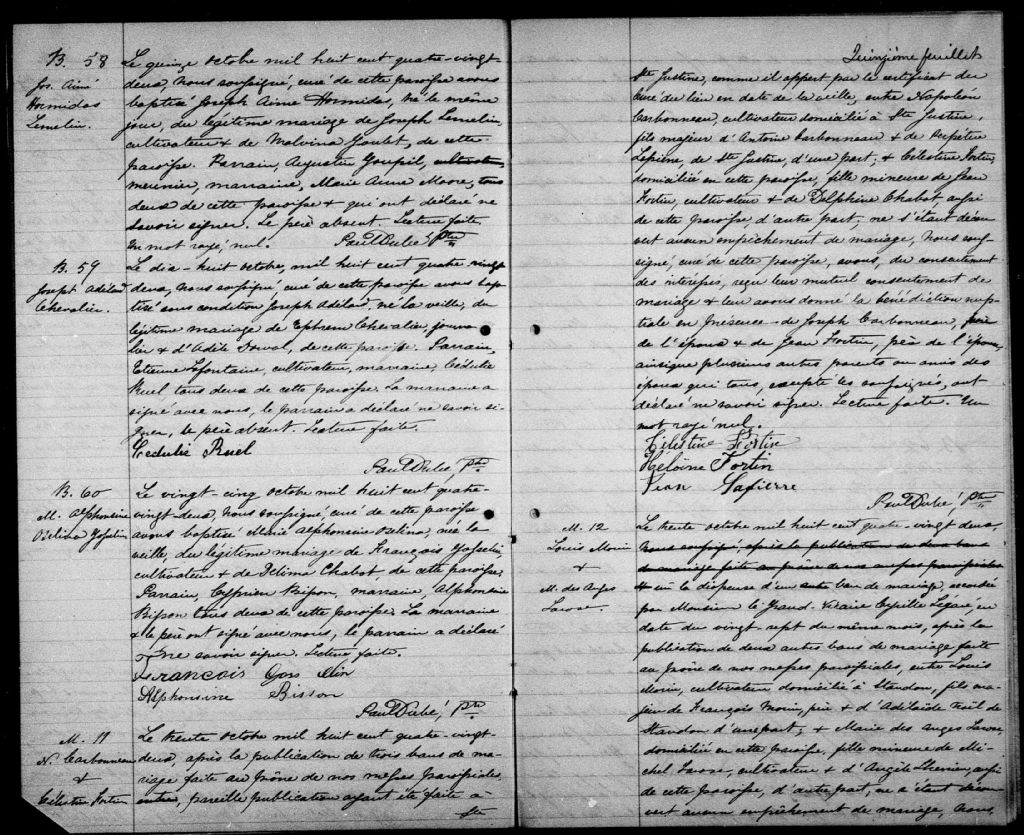 B. 58
Jos. Aimé
Hormidas
Lemelin.
Le quinze octobre mil huit cent quatre-vingt
deux, Nous soussigné, curé de cette paroisse avons
baptisé Joseph Aimé Hormidas, né le même
jour, du légitime mariage de Joseph Lemelin
cultivateur & de Malvina Goulet, de cette
paroisse. Parrain, Augustin Goupil, cultivateur,
meunier, marraine, Marie Anna Moore, tous
deux de cette paroisse & qui ont déclaré ne
savoir signer. Le père absent. Lecture faite
Un mot rayé nul. Paul Dubé, Ptre
B. 59
Joseph Adélard
Chevalier.
Le dix-huit octobre, mil huit cent quatre vingt
deux, Nous soussigné curé de cette paroisse avons bap-
tisé sous condition Joseph Adélard né la veille, du
légitime mariage de Ephrem Chevalier, journa-
lier & d'Adèle, de cette paroisse. Parrain,
Etienne Lafontaine, cultivateur, marraine, Cédulie
Ruel tous deux de cette paroisse. La marraine a
signé avec nous, le parrain a déclaré ne savoir si-
gner, le père absent. Lecture faite.
Cedulie Ruel
Paul Dubé, Ptre
B. 60
M. Alphonsine
Osélina Gosselin
Le vingt-cinq octobre mil huit cent quatre-
vingt-deux, Nous soussigné curé de cette paroisse
avons baptisé Marie Alphonsine, née la
veille, du légitime mariage de François Gosselin,
cultivateur & de Délima Chabot, de cette paroisse,
Parrain, Cyprien Bisson, marraine, Alphonsine
Bisson tous deux de cette paroisse. La marraine
& le père ont signé avec nous, le parrain a déclaré
ne savoir signer. Lecture faite.
Francois Gosselin
Alphonsine Bisson
Paul Dubé, Ptre
M. 11
N. Carbonneau
&
Célestine Fortin
Le trente octobre mil huit cent quatre-vingt-
deux, après la publication de trois bans de ma-
riage faite au prône de nos messes paroissiales,
entre, pareille publication ayant été faite à
Ste
Quinzième feuillet
Ste Justine, comme il appert par le certificat du
Curé du lieu en date de la veille, entre Napoléon
Carbonneau, cultivateur domicilié à Ste Justine,
fils majeur d'Antoine Carbonneau & de Perpétue
Lapierre, de Ste Justine, d'une part; & Célestine Fortin,
domiciliée en cette paroisse, fille mineure de Jean
Fortin, cultivateur & de Delphine Chabot aussi
de cette paroisse, d'autre part; ne s'étant décou-
vert aucun empêchement de mariage, Nous sous-
signé, curé de cette paroisse, avons, du consentement
des intéressés, reçu leur mutuel consentement de
mariage & leur avons donné la bénédiction nup-
tiale en présence de Joseph Carbonneau, père
de l'époux & de Jean Fortin, père de l'épouse,
ainsi que plusieurs autres parents ou amis des
époux qui tous, excepté les soussignés, ont
déclaré ne savoir signer. Lecture faite. Un
mot rayé nul.
Célestine Fortin
Héloïse Fortin
Jean Lapierre
Paul Dubé, Ptre
M. 12
Louis Morin
&
M. des Anges
Lavoie.
Le trente octobre mil huit cent quatre-vingt deux,
Nous soussigné, après la publication de deux bans
de mariage faite au prône de nos messes paroissiales
vu la dispense d'un ban de mariage, accordée
par Monsieur le Grand-Vicaire Cyrille Légaré en
date du vingt-sept du même mois, après la
publication de deux autres bans de mariage faite
au prône de nos messes paroissiales, entre Louis
Morin, cultivateur domicilié à Standon, fils ma-
jeur de François Morin, père & d'Adélaïde de
Standon d'une part; & Marie des Anges Lavoie
domiciliée en cette paroisse, fille mineure de Mi-
chel Lavoie, cultivateur & d'Angèle, aussi
de cette paroisse, d'autre part, ne s'étant décou-
vert aucun empêchement de mariage, Nous,